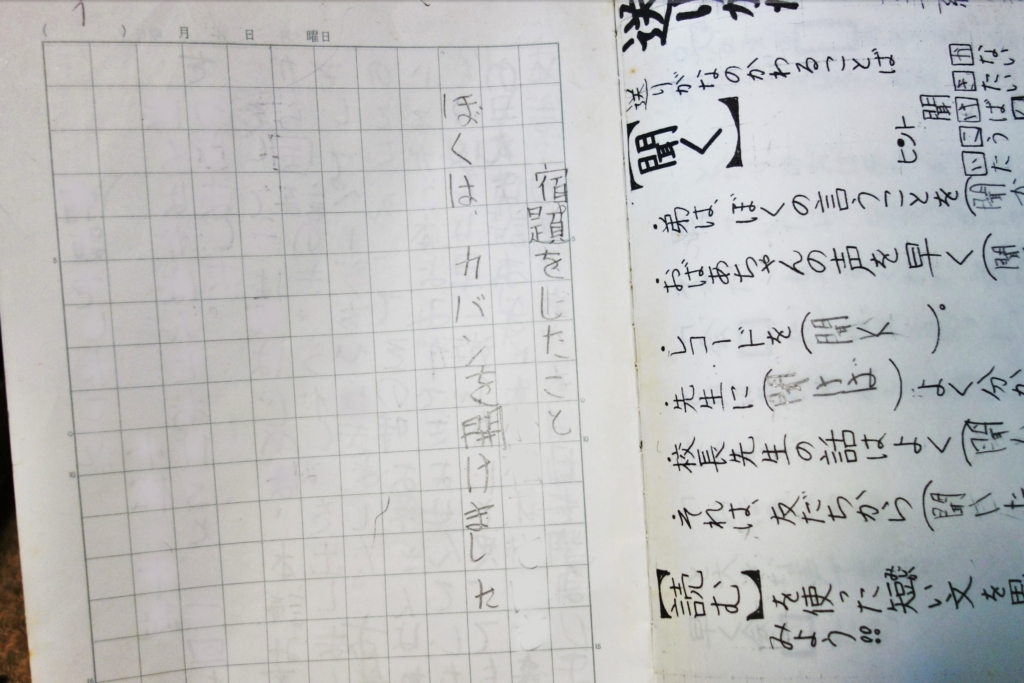 ( ) 月 日 曜日
宿題をしたこと
ぼくは、カバンを開けました
送りがな
送りがなのかわることば
【聞く】
ヒント
聞
かない
きたい
けば
こう
いた
・弟は、ぼくの言うことを(聞か
・おばあちゃんの声を早く(聞
・レコードを(聞く)。
・先生に(聞けば)よく分か
・校長先生の話はよく(聞
・それは、友だちから(聞いた
【読む】を使った短い文を
みよう!!